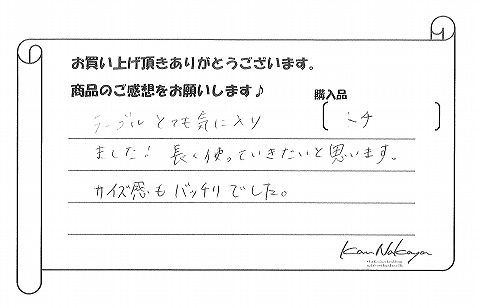 お買い上げ頂きありがとうございます。
商品のご感想をお願いします♪
購入品
テーブル とても気に入り
ました! 長く使っていきたいと思います。
サイズ感もバッチリでした。
Kan Nakaya